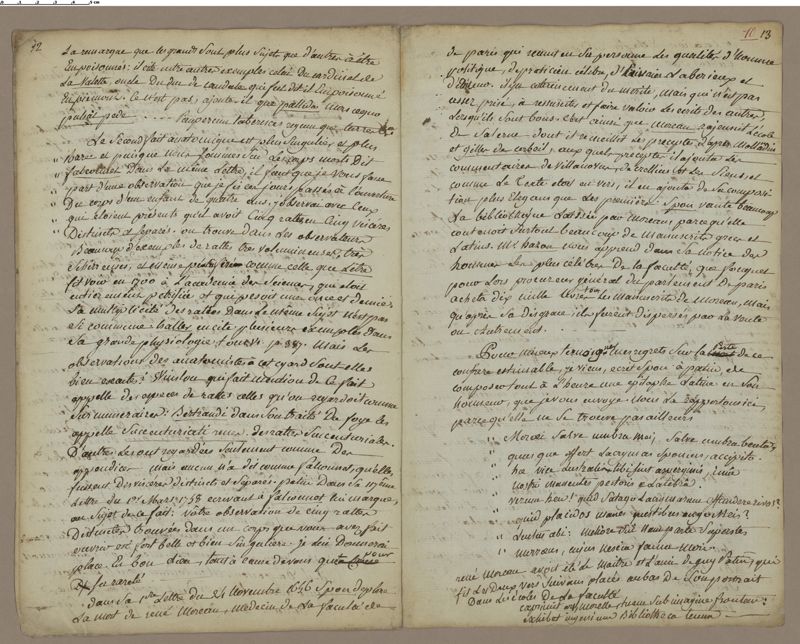 12
La remarque que les grands sont plus sujets que d'autres à être
Empoisonnés: il cite entre autres exemples celui du cardinal de
La Valette, ou de Du duc de candale qui fut dit-il Empoisonné
En piémont. Ce n'est pas, ajoute il que pallida mors æquo
pulsat pede pauperum tabernas regumque turres
Le Second fait anatomique est plus Singulier et plus
rare et puisque nous sommes sur les corps morts Dit
falconet Dans la même Lettre, il faut que je vous fasse
part d'une observation que je fis ces jours passés à l'ouverture
Du corps d'un enfant de quatre ans, j'observai avec Ceux
qui étoient présents qu'il avoit Cinq rattes en Cinq viscères
Distincts et séparés. on trouve dans Les observateurs
Beaucoup d'exemples de rattes très volumineuses, très
Schirreuses, et même comme celle que Littre
fit voir en 1700 à L'académie des Sciences, que étoit
entierement petrifiée et qui pesoit une once et demie.
La multiplicité des rattes Dans Le même Sujet n'est pas
Si commune: haller en cite plusieurs exemples Dans
Sa grande physiologie, tome VI. p. 387. Mais Les
observations des anatomistes à cet égard sont elles
bien exactes? Winslou qui fait mention de Ce fait
appelle des especes de rattes celles qu'on regardoit comme
surnumeraires: Bertrandi dans son traité du foye les
appelle Succenturiati renes. des rattes Succenturiales.
D'autres Les ont regardées Seulement comme Des
appendices Mais aucun n'a dit comme falconet, qu'elles
fussent Des viscères distincts et séparés. patin dans Sa
Lettre du 1er Mars 1658 écrivant à falconet lui marque,
au Sujet de ce fait: Votre observation de cinq rattes
Distinctes trouvées dans un corps que vous avez fait
ouvrir est fort belle et bien Singuliere je lui Donnerai
place En bon Lieu, tout à cause de vous que pour
Sa rareté
dans Sa Lettre du 24 Novembre 1656 Spon deplore
La mort de rené Moreau, Medecin de La faculté de
11 13
de paris qui reunit en Sa personne Les qualités d'homme
politique, de praticien célèbre, d'Ecrivain Laborieux et
D'Editeur. Il fut certainement du mérite, mais qui n'est pas
assez prisé, à ressusciter et faire valoir Les écrits des autres,
Lorsqu'ils Sont bons. C'est ainsi que Moreau rajeunit L'école
de Salerne dont il recueillit Les preceptes d'après
et Gilles de Corbeil, aux quels preceptes il ajouta Les
commentaires de Villanovan, de Crellius et Les Siens et
comme Le Texte étoit en vers, il en ajouta de Sa composi-
tion plus élégans que Les premiers. Spon vante beaucoup
La bibliotheque Laissée par Moreau, parce qu'elle
contenoit Surtout beaucoup de Manuscrits grecs et
Latins. Mr hazon nous apprend dans Sa notice des
hommes Les plus célèbres de la faculté, que fouquet
pour Lors procureur général du parlement de paris
acheta dix mille Livres Les Manuscrits de Moreau, Mais
qu'après Sa disgrace ils furent dispersés par La vente
ou autrement.
Pour mieux temoigner mes regrets Sur la perte de ce
confrere estimable, je viens, écrit Spon à patin, de
composer tout à L'heure une épitaphe Latine en Son
honneur, que je vous envoye. Nous La rapportons ici,
parce qu'elle ne Se trouve pas ailleurs
Morée Salve umbra mei, Salve umbra beata,
quas que offert Lacrymas Sponius, accipito.
hæc vice Lustralis tibi sunt
nostri manantes pectoris
verum heu! quid Satago Lacrymarum offendere rivos?
quid placidos manes questibus ango tuos?
Lustus abi: meliore tui nam parte Superstes
nescia fama mori
rené Moreau avoit été Le Maître et L'ami de guy Patin, qui
fit Les Deux vers Suivans placés au bas de Son portrait
Dans Les écoles de La faculté
Sub imagine frontem:
Exhibet ingens una Bibliotheca